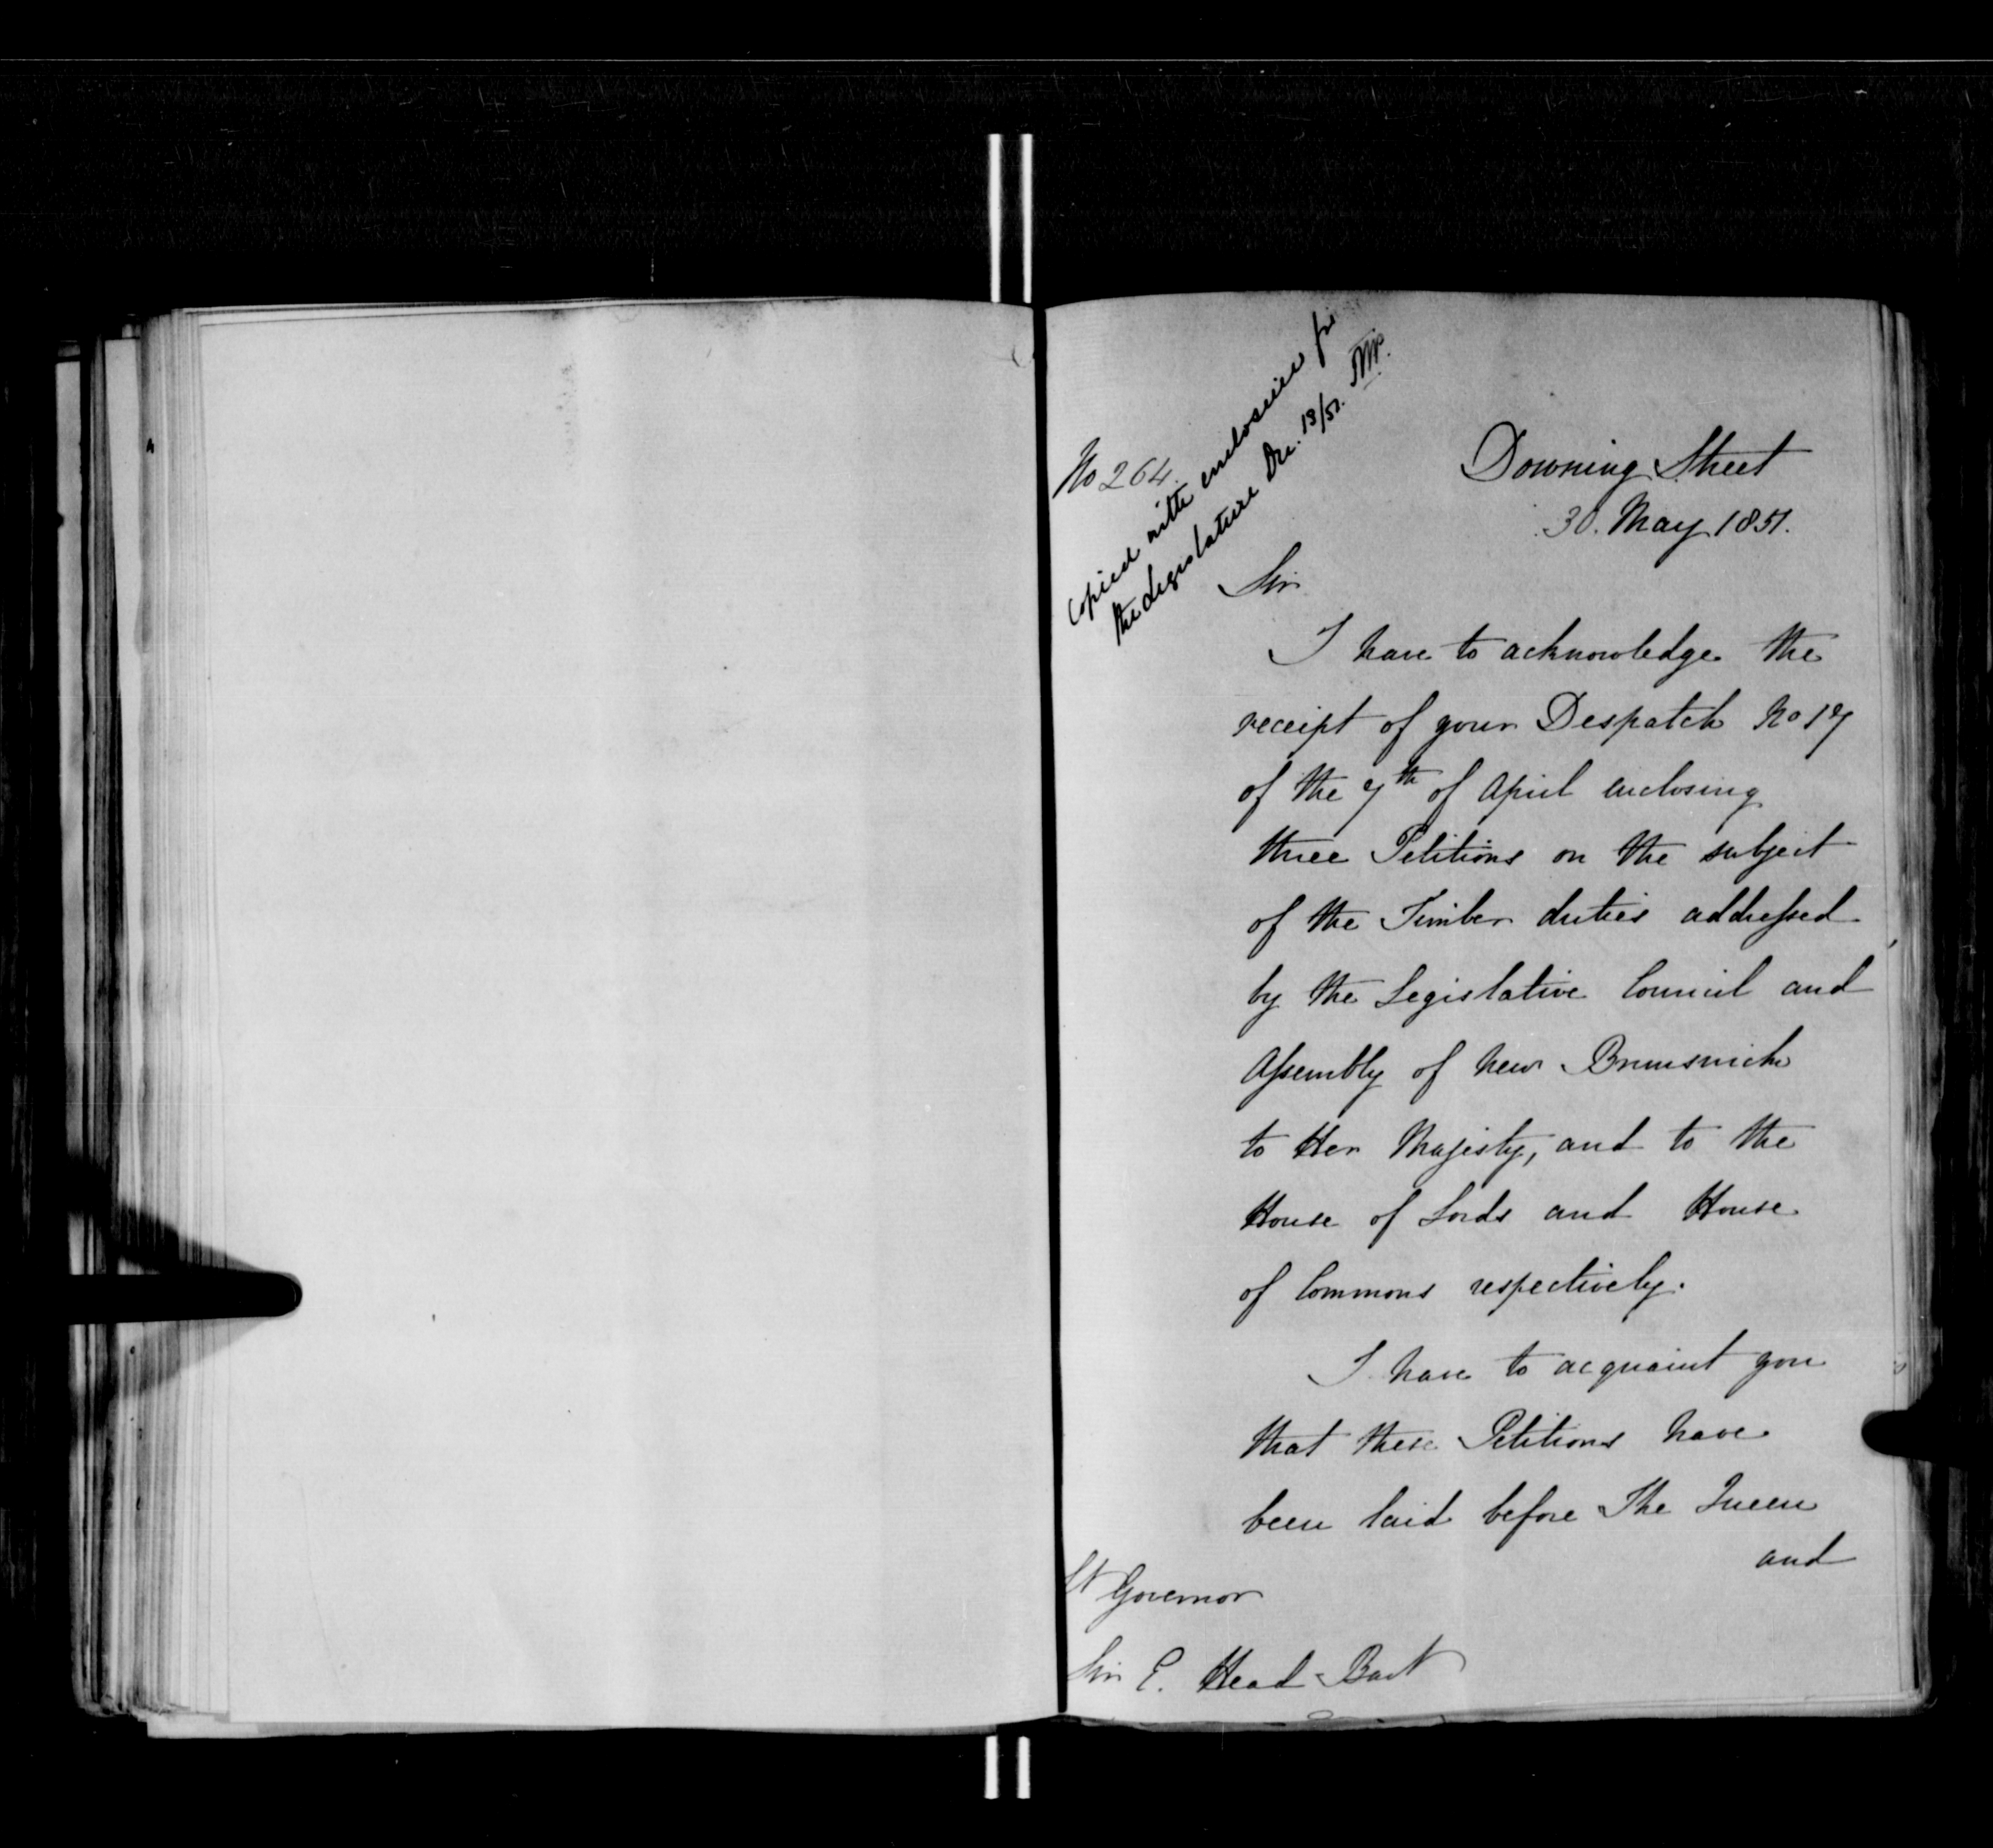 No 264.
Copied with enclosure for
the Legislature Dec. 13/51.
Downing Street
30. May 1851.
Sir
I have to acknowledge the
receipt of your Despatch No 17
of the 7th of April enclosing
three Petitions on the subject
of the Timber duties addressed
by the Legislative Council and
Assembly of New Brunswick
to Her Majesty, and to the
House of Lords and House
of Commons respectively.
I have to acquaint you
that these Petitions have
been laid before The Queen
and
Lt Governor
Sir E. Head Bart